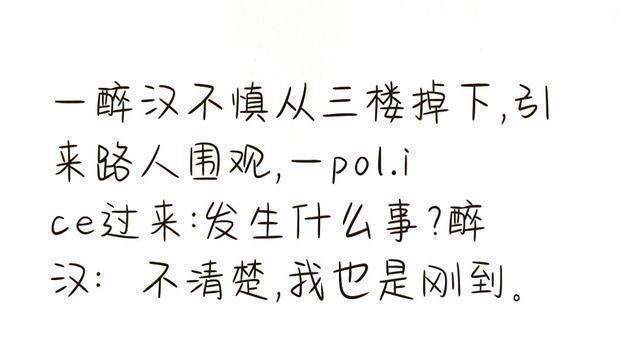 一醉汉不慎从三楼掉下,引
来路人围观,一pol.i
ce过来:发生什么事?醉
汉: 不清楚,我也是刚到。